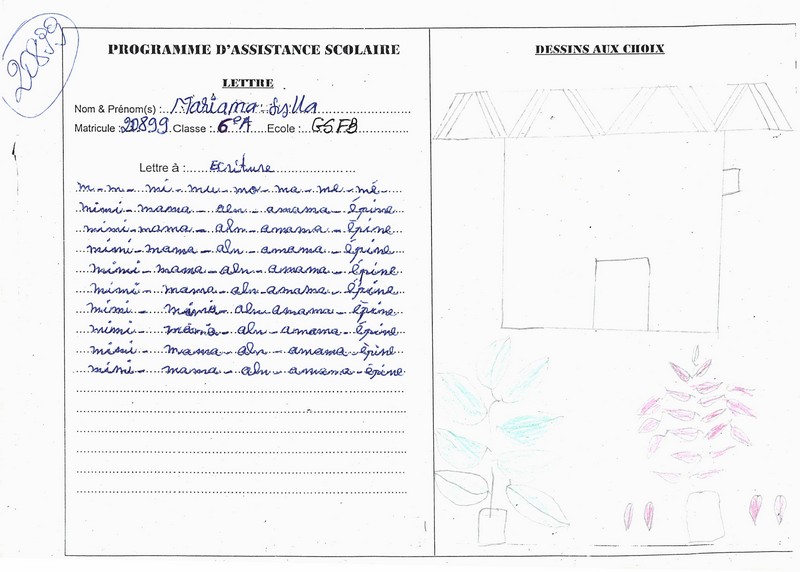 20899
PROGRAMME D'ASSISTANCE SCOLAIRE
LETTRE
Nom & Prénom(s) : Mariama Sylla
Matricule : 20899 Classe : 6e A Ecole : GSFB
Lettre à : Ecriture
m - m - mi - mu - mo - ma - me - mé
mimi - mama - aln - amama - épine
mimi - mama - aln - amama - épine
mimi - mama - aln - amama - épine
mimi - mama - aln - amama - épine
mimi - mama - aln - amama - épine
mimi - mama - aln - amama - épine
mimi - mama - aln - amama - épine
mimi - mama - aln - amama - épine
mimi - mama - aln - amama - épine
DESSINS AUX CHOIX